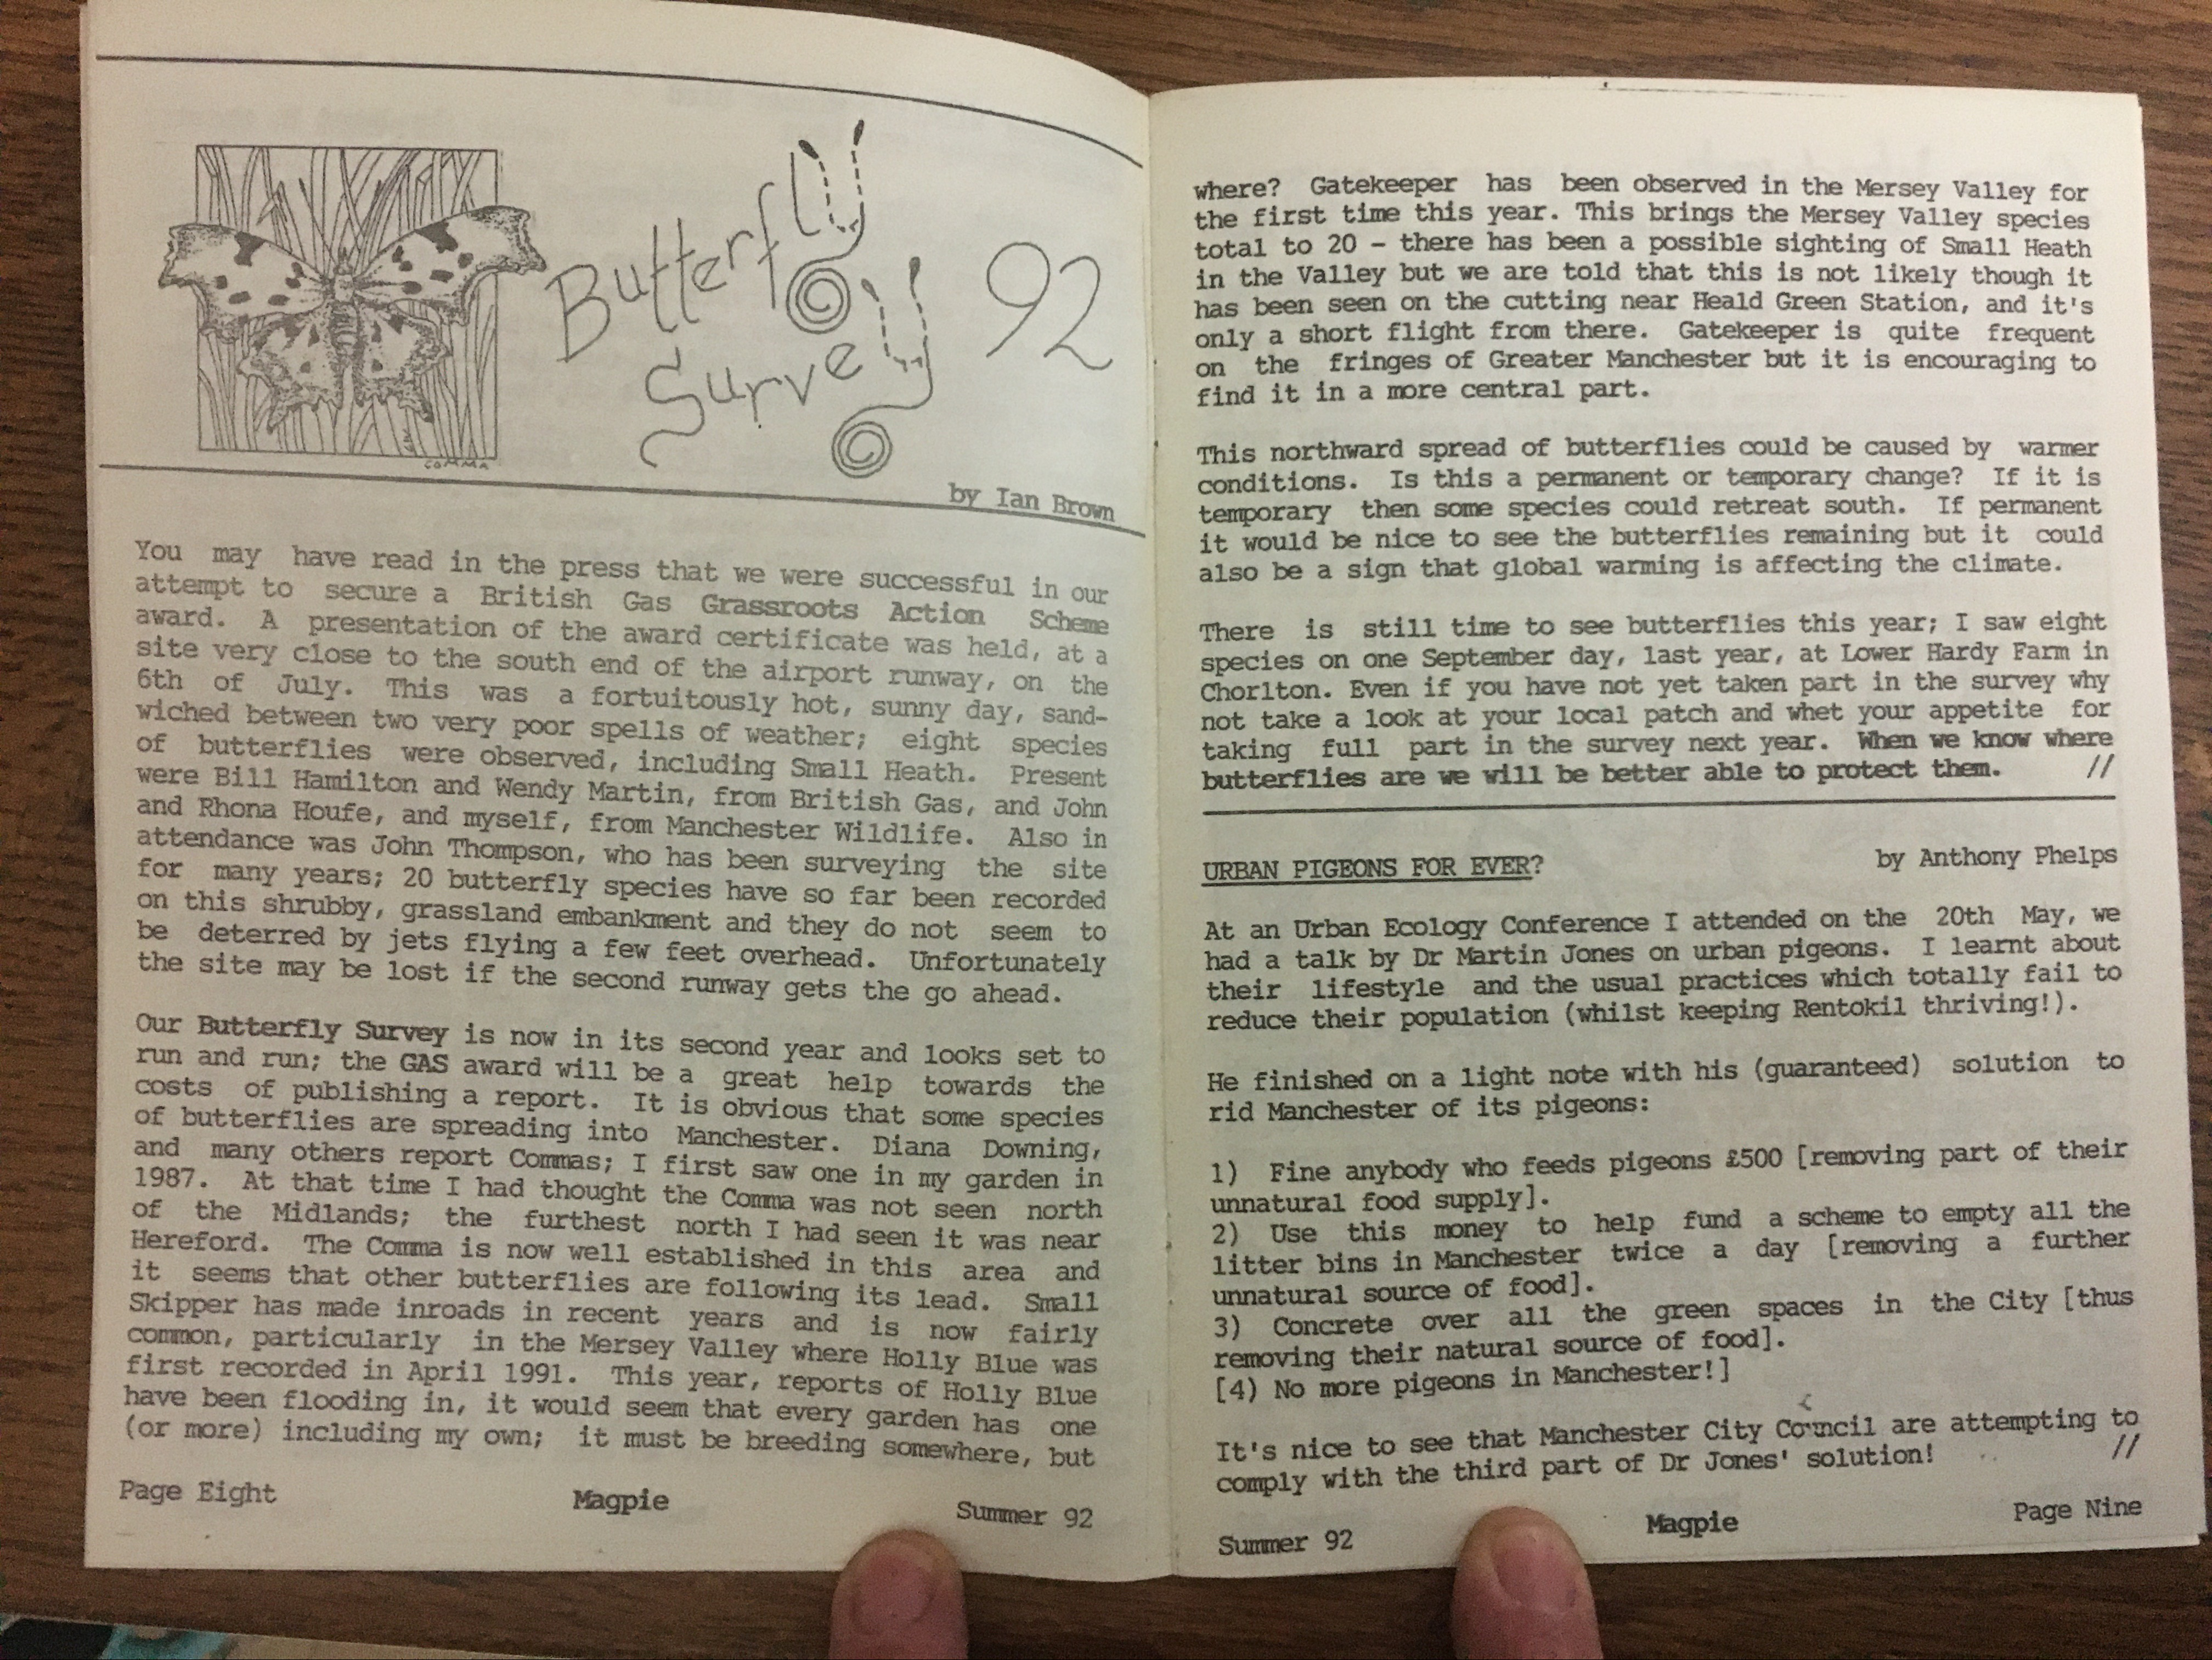 Butterfly
Survey 92
COMMA
by Ian Brown
You may have read in the press that we were successful in our
attempt to secure a British Gas Grassroots Action Scheme
award. A presentation of the award certificate was held, at a
site very close to the south end of the airport runway, on the
6th of July. This was a fortuitously hot, sunny day, sand-
wiched between two very poor spells of weather; eight species
of butterflies were observed, including Small Heath. Present
were Bill Hamilton and Wendy Martin, from British Gas, and John
and Rhona Houfe, and myself, from Manchester Wildlife. Also in
attendance was John Thompson, who has been surveying the site
for many years; 20 butterfly species have so far been recorded
on this shrubby, grassland embankment and they do not seem to
be deterred by jets flying a few feet overhead. Unfortunately
the site may be lost if the second runway gets the go ahead.
Our Butterfly Survey is now in its second year and looks set to
run and run; the GAS award will be a great help towards the
costs of publishing a report. It is obvious that some species
of butterflies are spreading into Manchester. Diana Downing,
and many others report Commas; I first saw one in my garden in
1987. At that time I had thought the Comma was not seen north
of the Midlands; the furthest north I had seen it was near
Hereford. The Comma is now well established in this area and
it seems that other butterflies are following its lead. Small
Skipper has made inroads in recent years and is now fairly
common, particularly in the Mersey Valley where Holly Blue was
first recorded in April 1991. This year, reports of Holly Blue
have been flooding in, it would seem that every garden has one
(or more) including my own; it must be breeding somewhere, but
Page Eight Magpie Summer 92
where? Gatekeeper has been observed in the Mersey Valley for
the first time this year. This brings the Mersey Valley species
total to 20 - there has been a possible sighting of Small Heath
in the Valley but we are told that this is not likely though it
has been seen on the cutting near Heald Green Station, and it's
only a short flight from there. Gatekeeper is quite frequent
on the fringes of Greater Manchester but it is encouraging to
find it in a more central part.
This northward spread of butterflies could be caused by warmer
conditions. Is this a permanent or temporary change? If it is
temporary then some species could retreat south. If permanent
it would be nice to see the butterflies remaining but it could
also be a sign that global warming is affecting the climate.
There is still time to see butterflies this year; I saw eight
species on one September day, last year, at Lower Hardy Farm in
Chorlton. Even if you have not yet taken part in the survey why
not take a look at your local patch and whet your appetite for
taking full part in the survey next year. When we know where
butterflies are we will be better able to protect them. //
URBAN PIGEONS FOR EVER? by Anthony Phelps
At an Urban Ecology Conference I attended on the 20th May, we
had a talk by Dr Martin Jones on urban pigeons. I learnt about
their lifestyle and the usual practices which totally fail to
reduce their population (whilst keeping Rentokil thriving!).
He finished on a light note with his (guaranteed) solution to
rid Manchester of its pigeons:
1) Fine anybody who feeds pigeons £500 [removing part of their
unnatural food supply].
2) Use this money to help fund a scheme to empty all the
litter bins in Manchester twice a day [removing a further
unnatural source of food].
3) Concrete over all the green spaces in the City [thus
removing their natural source of food].
[4) No more pigeons in Manchester!]
It's nice to see that Manchester City Council are attempting to
comply with the third part of Dr Jones' solution! //
Summer 92 Magpie Page Nine